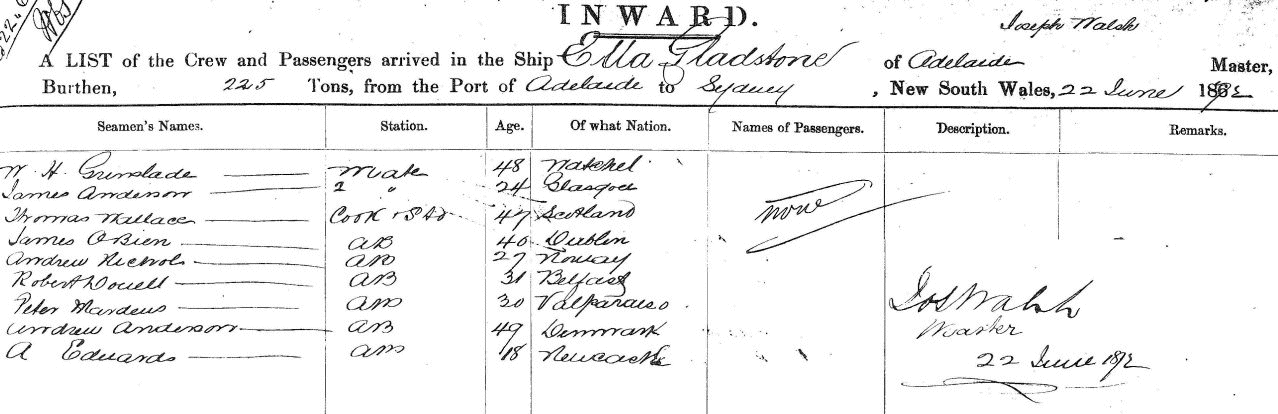 INWARD.
Joseph Walsh
A LIST of the Crew and Passengers arrived in the Ship Ella Gladstone of Adelaide Master,
Burthen, 225 Tons, from the Port of Adelaide to Sydney, New South Wales, 22 June 1872
Seamen's Names. Station. Age. Of what Nation. Names of Passengers. Description. Remarks.
W. H. Grenslade Mate 48
James Anderson 2 " 24 Glasgoe
Thomas Wallace Cook & Std 47 Scotland
none
James OBien AB 40 Dublin
Andrew Nichols AB 27 Noway
Robert Douell AB 31 Belfast
Peter Mardens AB 30 Valparaiso
Jos Walsh
Andrew Anderson AB 49 Denmark
Master
A Eduards AB 18 Newcastle
22 June 1872